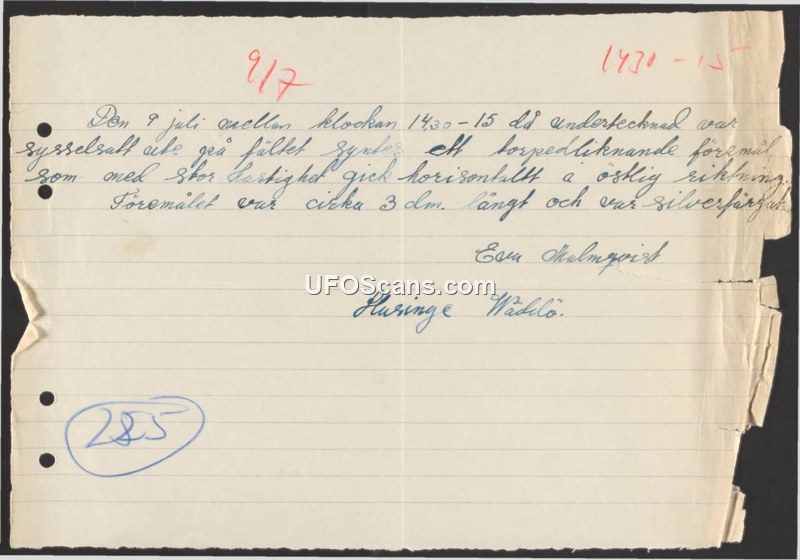 9/7
1430 - 15
Den 9 juli mellan klockan 14,30-15 då undertecknad var
sysselsatt ute på fältet syntes ett torpedliknande föremål,
som med stor hastighet gick horisontallt å östlig riktning.
Föremålet var cirka 3 dm. långt och var silverfärgat
Eva Malmqvist
UFOScans.com
Husinge Wäddö.
285